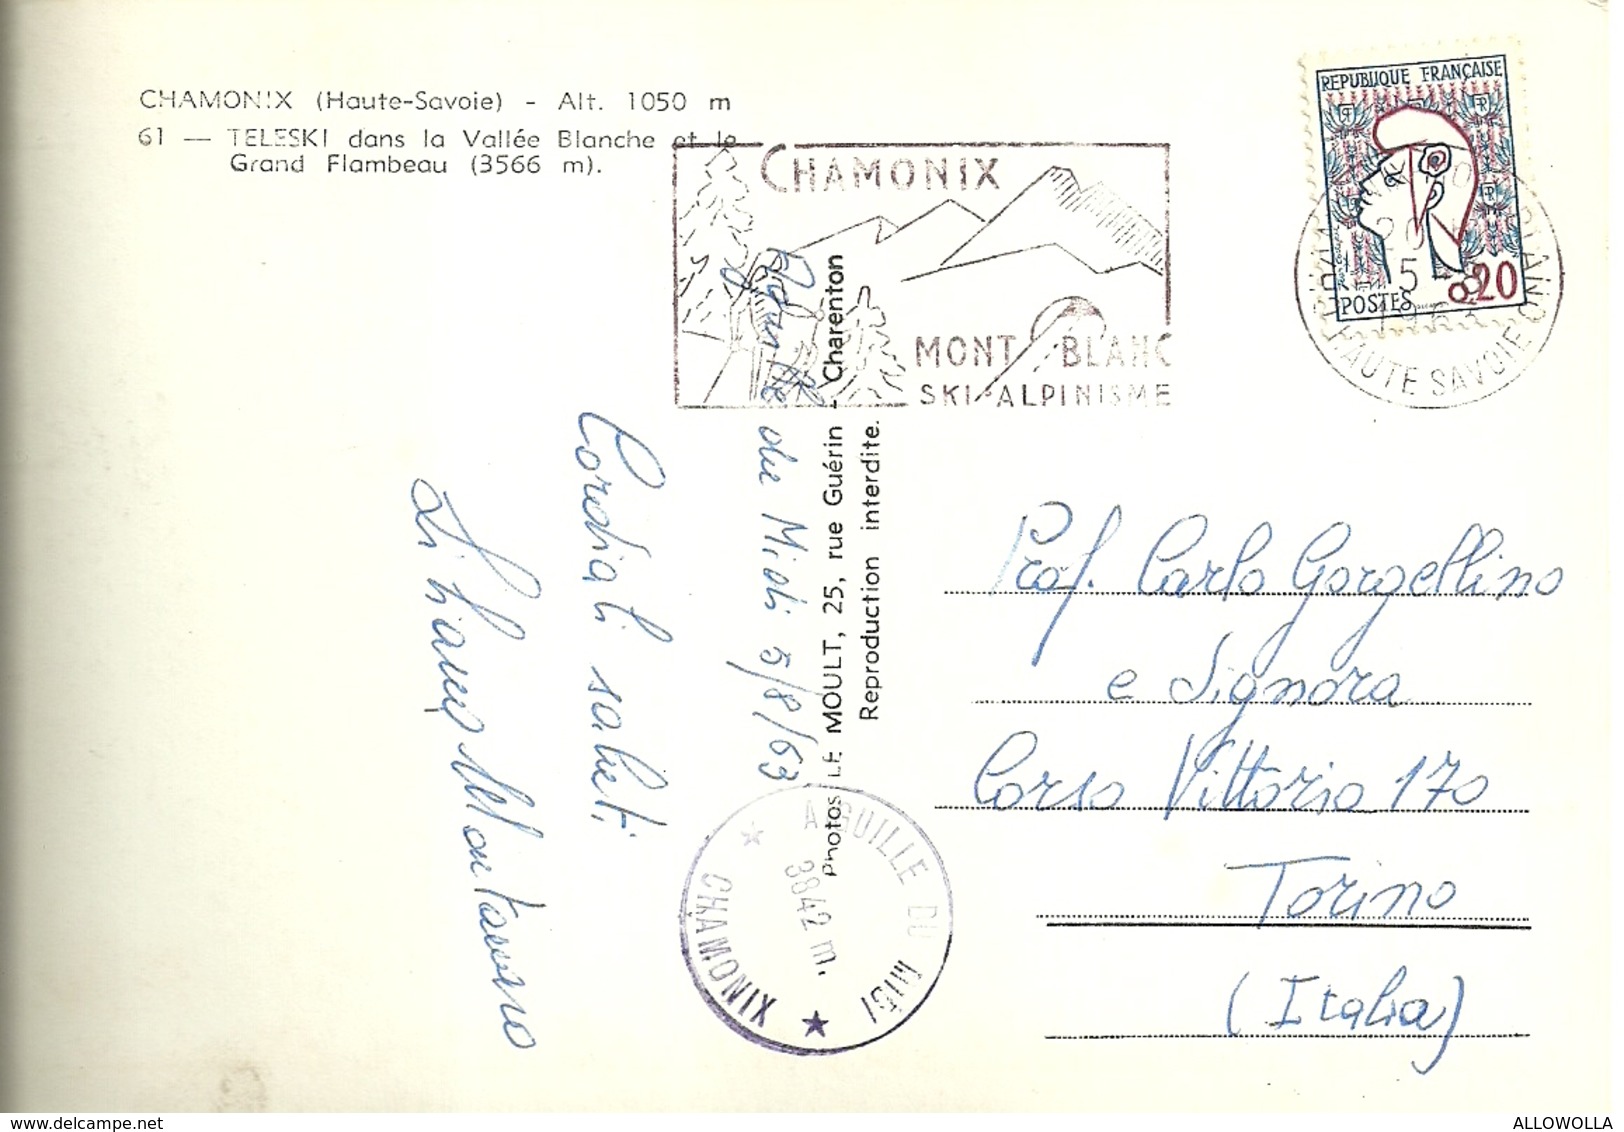 CHAMONIX (Haute-Savoie) - Alt. 1050 m
61 — TELESKI dans la Vallée Blanche et le
Grand Flambeau (3566 m).
CHAMONIX
MONT BLANC
SKI-ALPINISME
REPUBLIQUE FRANÇAISE
0,20
POSTES
20
5 - 8
1963
HAUTE SAVOIE
du Midi 5/8/63
Cordiali saluti
Photos LE MOULT, 25, rue Guérin - Charenton
Reproduction interdite.
AIGUILLE DU MIDI
3842 m.
CHAMONIX
Prof. Carlo Gorgellino
e Signora
Corso Vittorio 170
Torino
(Italia)
ALLOWOLLA